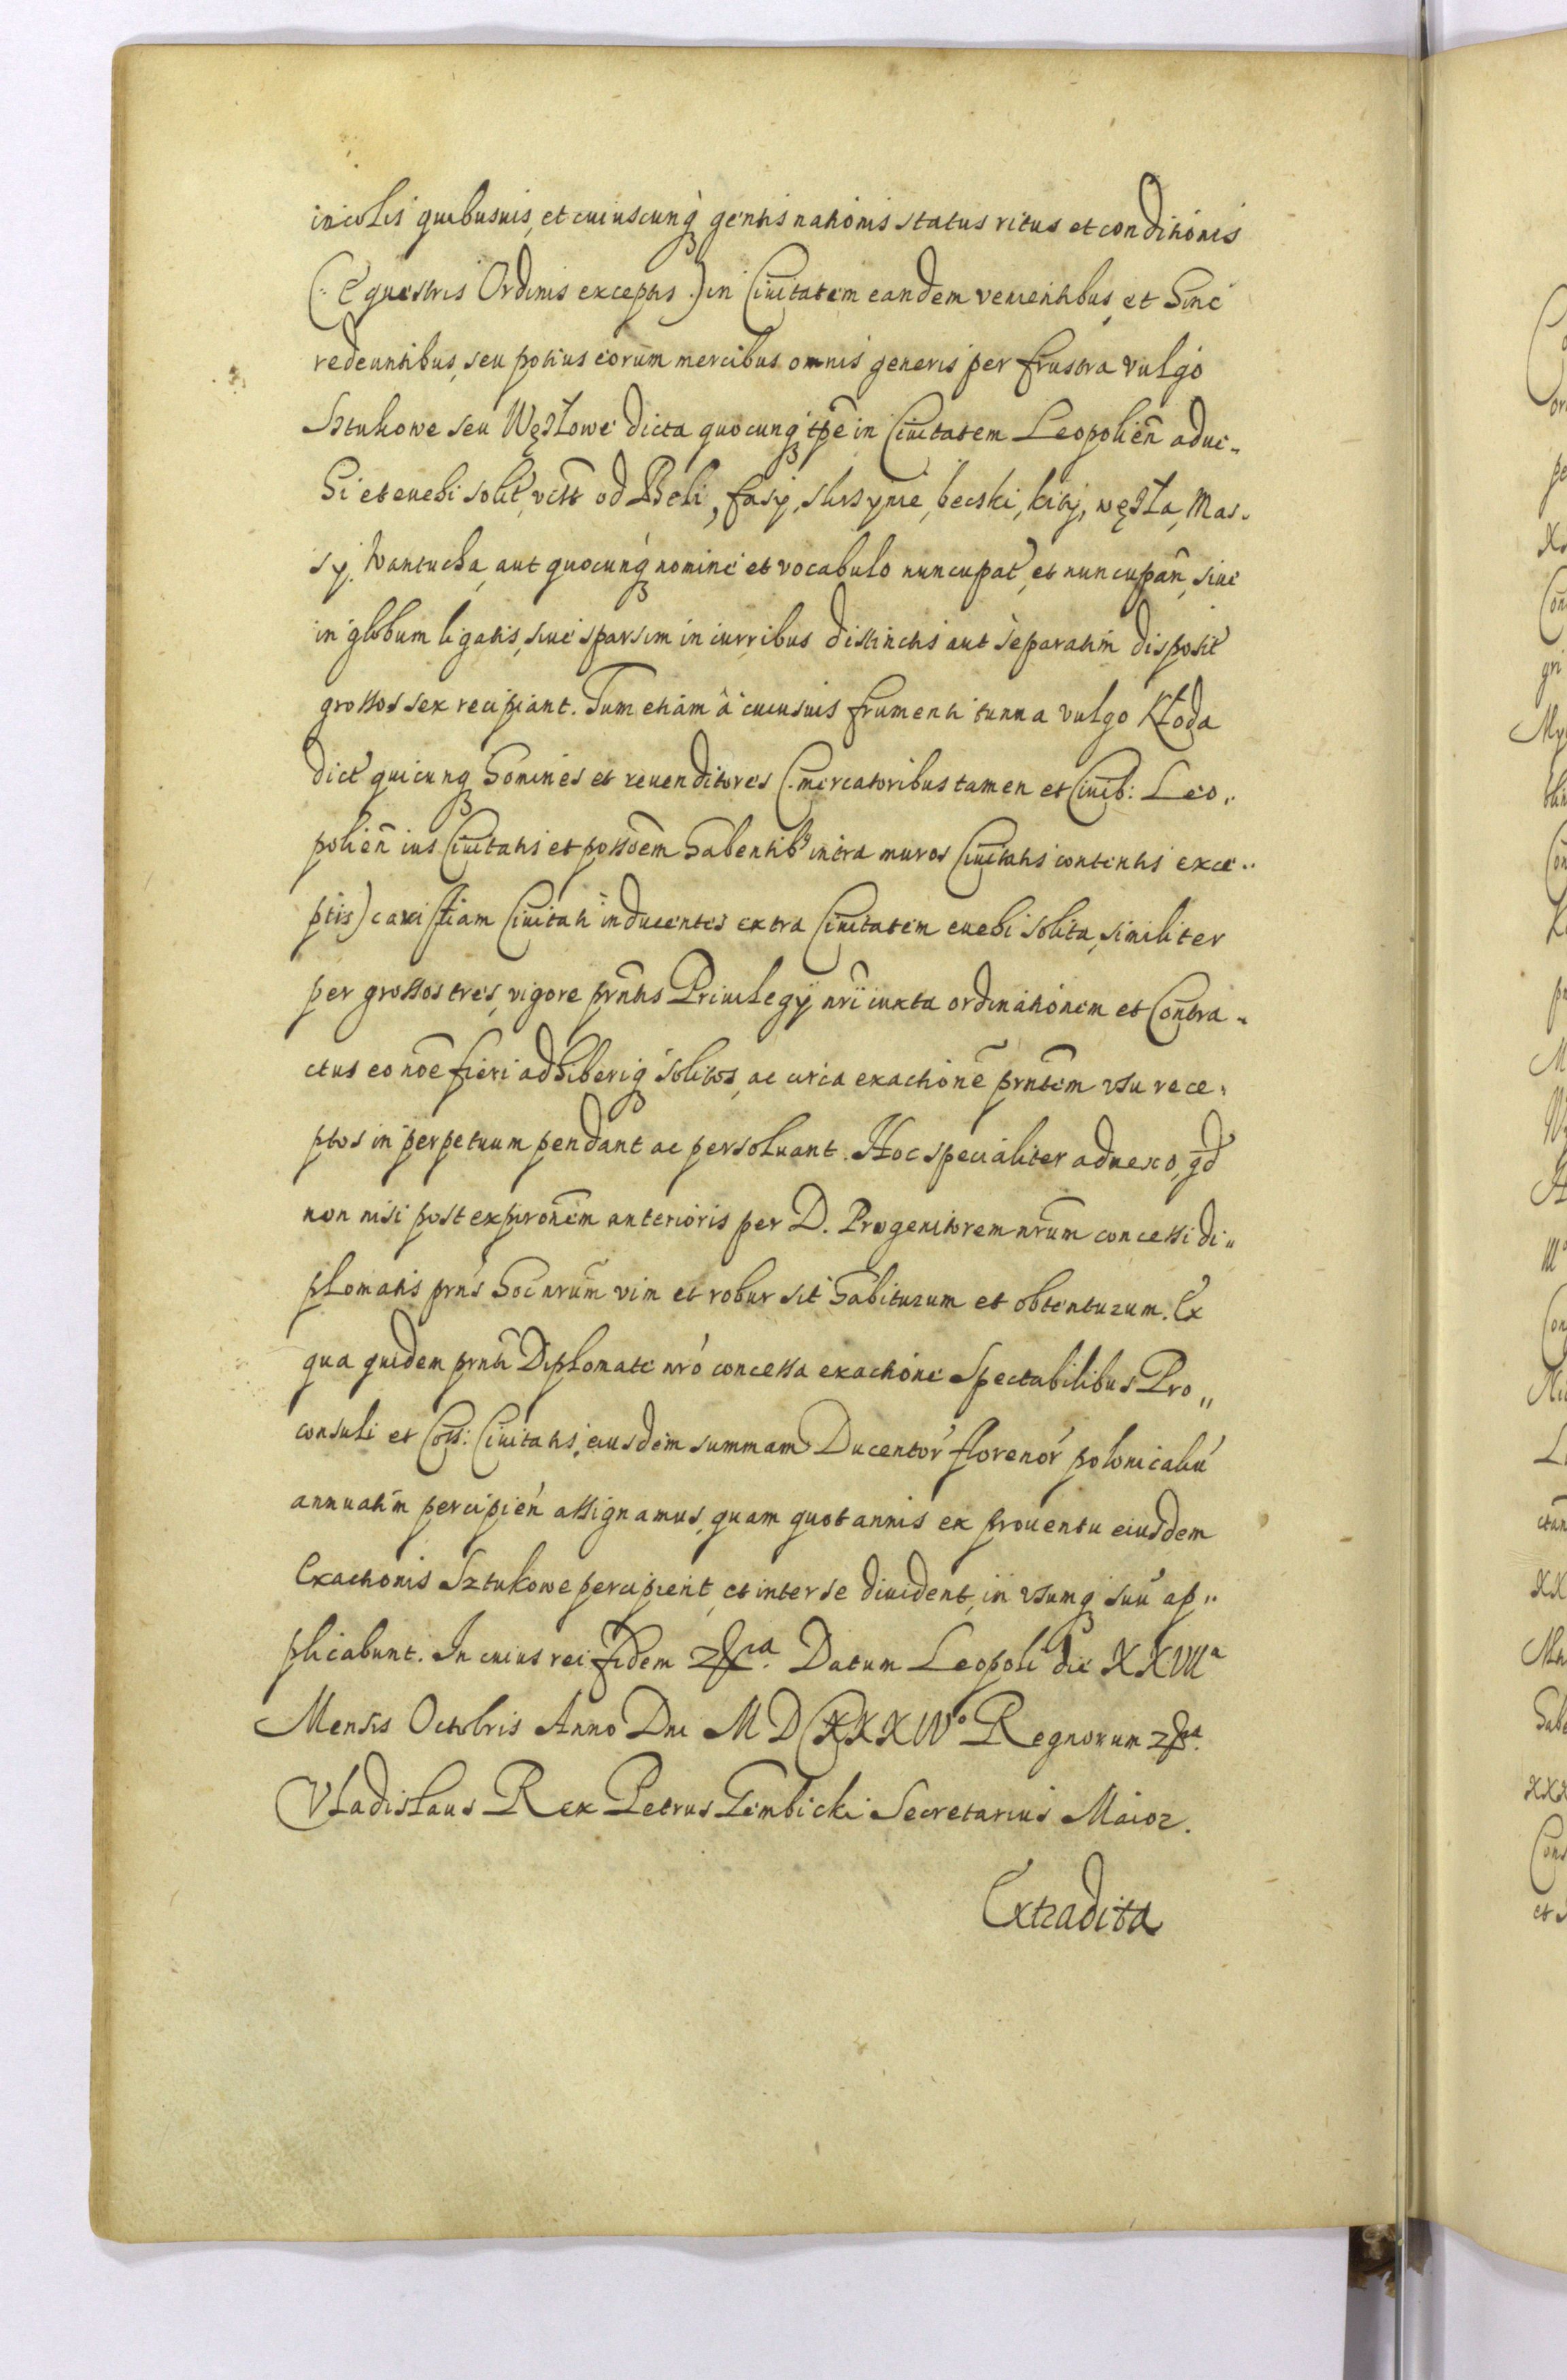 incolis quibusuis, et cuiuscunq gentis nationis status ritus et conditionis
(: Equestris Ordinis exceptis :) in Ciuitatem eandem venientibus, et hinc
redeuntibus, seu potius eorum mercibus omnis generis per frustra vulgo
Sztukowe seu Węzłowe dicta quocunq tpe in Ciuitatem Leopolien adue-
hi et euehi solit, vclt od Beli, fasy, skrzynie, beczki, kity, węzła, Mas-
sy, Wantucha, aut quocunq nomine et vocabulo nuncupat, et nuncupan, siue
in globum ligatis, siue sparsim in curribus distinctis aut separatim disposit
grossos sex recipiant. Tum etiam à cuiusuis frumenti tunna vulgo Kłoda
dict quicunq homines et reuenditores (: mercatoribus tamen et Ciuib: Leo"
polien ius Ciuitatis et possoem habentib9 intra muros Ciuitatis contentis exce"
ptis) caristiam Ciuitati inducentes extra Ciuitatem euehi solita, similiter
per grossos tres, vigore prntis Priuilegij nri iuxta ordinationem et Contra-
ctus eo noe fieri adhiberiq solitos, ac circa exactione prntem vsu rece-
ptos in perpetuum pendant ac persoluant. Hoc specialiter adnexo, qd
non nisi post expironem anterioris per D. Progenitorem nrum concessi di"
plomatis prns hoc nrum vim et robur sit habiturum et obtenturum. Ex
qua quidem prnti Diplomate nro concessa exactione Spectabilibus Pro"
consuli et Coss: Ciuitatis eiusdem summam Ducentor florenor polonicaliu
annuatim percipien assignamus, quam quotannis ex prouentu eiusdem
Exactionis Sztukowe percipient, et inter se diuident, in vsumq suu ap"
plicabunt. In cuius rei fidem &ra. Datum Leopoli die XXVIIa
Mensis Octobris Anno Dni MDCXXXIVo Regnorum &ra.
Vladislaus Rex Petrus Gembicki Secretarius Maior.
Extradita